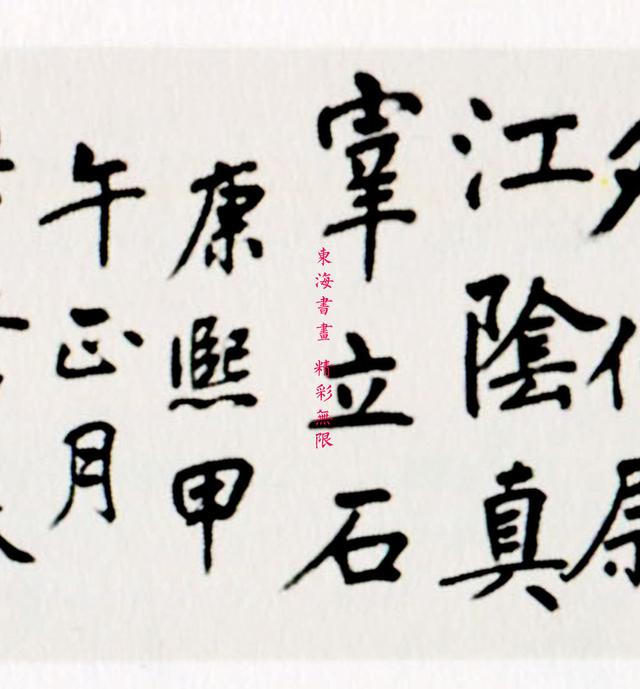 江陰真
宰立石
康熙甲
午正月
東海書畫 精彩無限